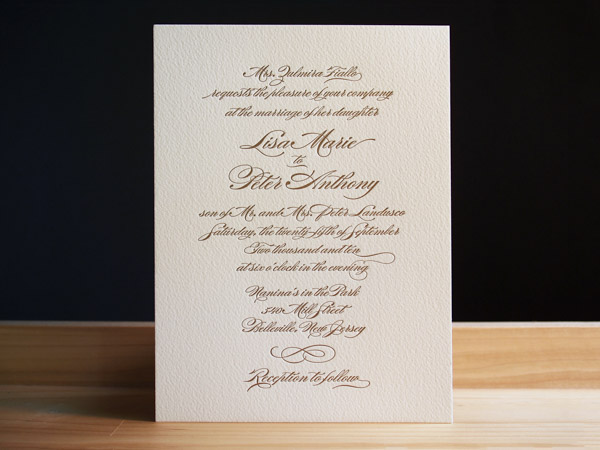 Mrs. Zulmira Fiallo
requests the pleasure of your company
at the marriage of her daughter
Lisa Marie
to
Peter Anthony
son of Mr. and Mrs. Peter Landusco
Saturday, the twenty-fifth of September
Two thousand and ten
at six o'clock in the evening
Nanina's in the Park
540 Mill Street
Belleville, New Jersey
Reception to follow